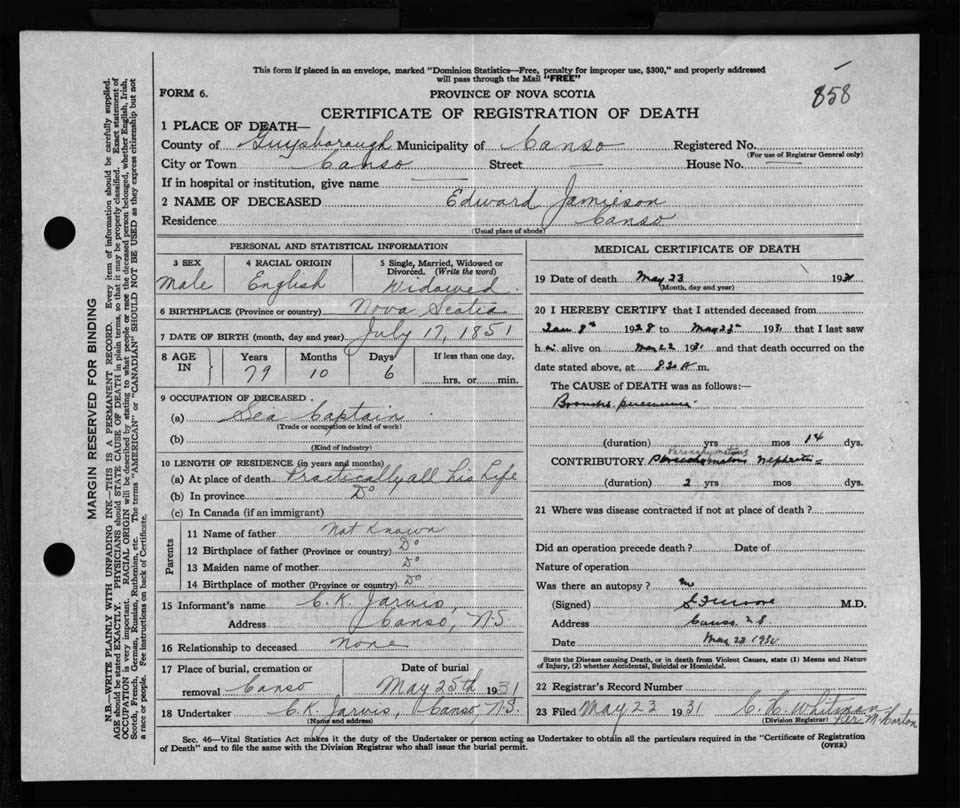 This form if placed in an envelope, marked "Dominion Statistics—Free, penalty for improper use, $300," and properly addressed
will pass through the Mail "FREE"
858
FORM 6.
PROVINCE OF NOVA SCOTIA
CERTIFICATE OF REGISTRATION OF DEATH
1 PLACE OF DEATH—
County of Guysborough Municipality of Canso Registered No.
(For use of Registrar General only)
City or Town Canso Street House No.
If in hospital or institution, give name
2 NAME OF DECEASED Edward Jamieson
Residence Canso
(Usual place of abode)
PERSONAL AND STATISTICAL INFORMATION
3 SEX
Male
4 RACIAL ORIGIN
English
5 Single, Married, Widowed or
Divorced. (Write the word)
Widowed.
6 BIRTHPLACE (Province or country) Nova Scotia
7 DATE OF BIRTH (month, day and year) July 17, 1851
8 AGE IN
Years Months Days If less than one day,
79 10 6 hrs. or min.
9 OCCUPATION OF DECEASED
(a) Sea Captain
(Trade or occupation or kind of work)
(b)
(Kind of industry)
10 LENGTH OF RESIDENCE (in years and months)
(a) At place of death Practically all his Life
(b) In province Do
(c) In Canada (if an immigrant)
Parents
11 Name of father Not Known
12 Birthplace of father (Province or country) Do
13 Maiden name of mother Do
14 Birthplace of mother (Province or country) Do
15 Informant's name C. K. Jarvis,
Address Canso, N.S.
16 Relationship to deceased None
17 Place of burial, cremation or
removal Canso
Date of burial
May 25th 1931
18 Undertaker C. K. Jarvis, Canso, N.S.
(Name and address)
MEDICAL CERTIFICATE OF DEATH
19 Date of death May 23 1931
(Month, day and year)
20 I HEREBY CERTIFY that I attended deceased from
Jan 8th 1928 to May 22nd 1931 that I last saw
him alive on May 22 1931 and that death occurred on the
date stated above, at 8.30 A m.
The CAUSE OF DEATH was as follows:—
Broncho pneumonia
(duration) yrs mos 14 dys.
Parenchymatous
CONTRIBUTORY nephritis
(duration) 2 yrs mos dys.
21 Where was disease contracted if not at place of death?
Did an operation precede death? Date of
Nature of operation
Was there an autopsy?
(Signed) M.D.
Address Canso N.S.
Date May 23 1931
State the Disease causing Death, or in death from Violent Causes, state (1) Means and Nature
of Injury, (2) whether Accidental, Suicidal or Homicidal.
22 Registrar's Record Number
23 Filed May 23 1931 C. H. Whitman
(Division Registrar) Per M. Horton
Sec. 46—Vital Statistics Act makes it the duty of the Undertaker or person acting as Undertaker to obtain all the particulars required in the "Certificate of Registration
of Death" and to file the same with the Division Registrar who shall issue the burial permit.
(OVER)
MARGIN RESERVED FOR BINDING
N.B.—WRITE PLAINLY WITH UNFADING INK—THIS IS A PERMANENT RECORD. Every item of information should be carefully supplied.
AGE should be stated EXACTLY. PHYSICIANS should STATE CAUSE OF DEATH in plain terms, so that it may be properly classified. Exact statement of
OCCUPATION is very important. RACIAL ORIGIN will be described by stating to what people or race the deceased person belonged, whether English, Irish,
Scotch, French, German, Russian, Ruthenian, etc. The terms "AMERICAN" or "CANADIAN" SHOULD NOT BE USED as they express citizenship but not
a race or people. Fee instructions on back of Certificate.